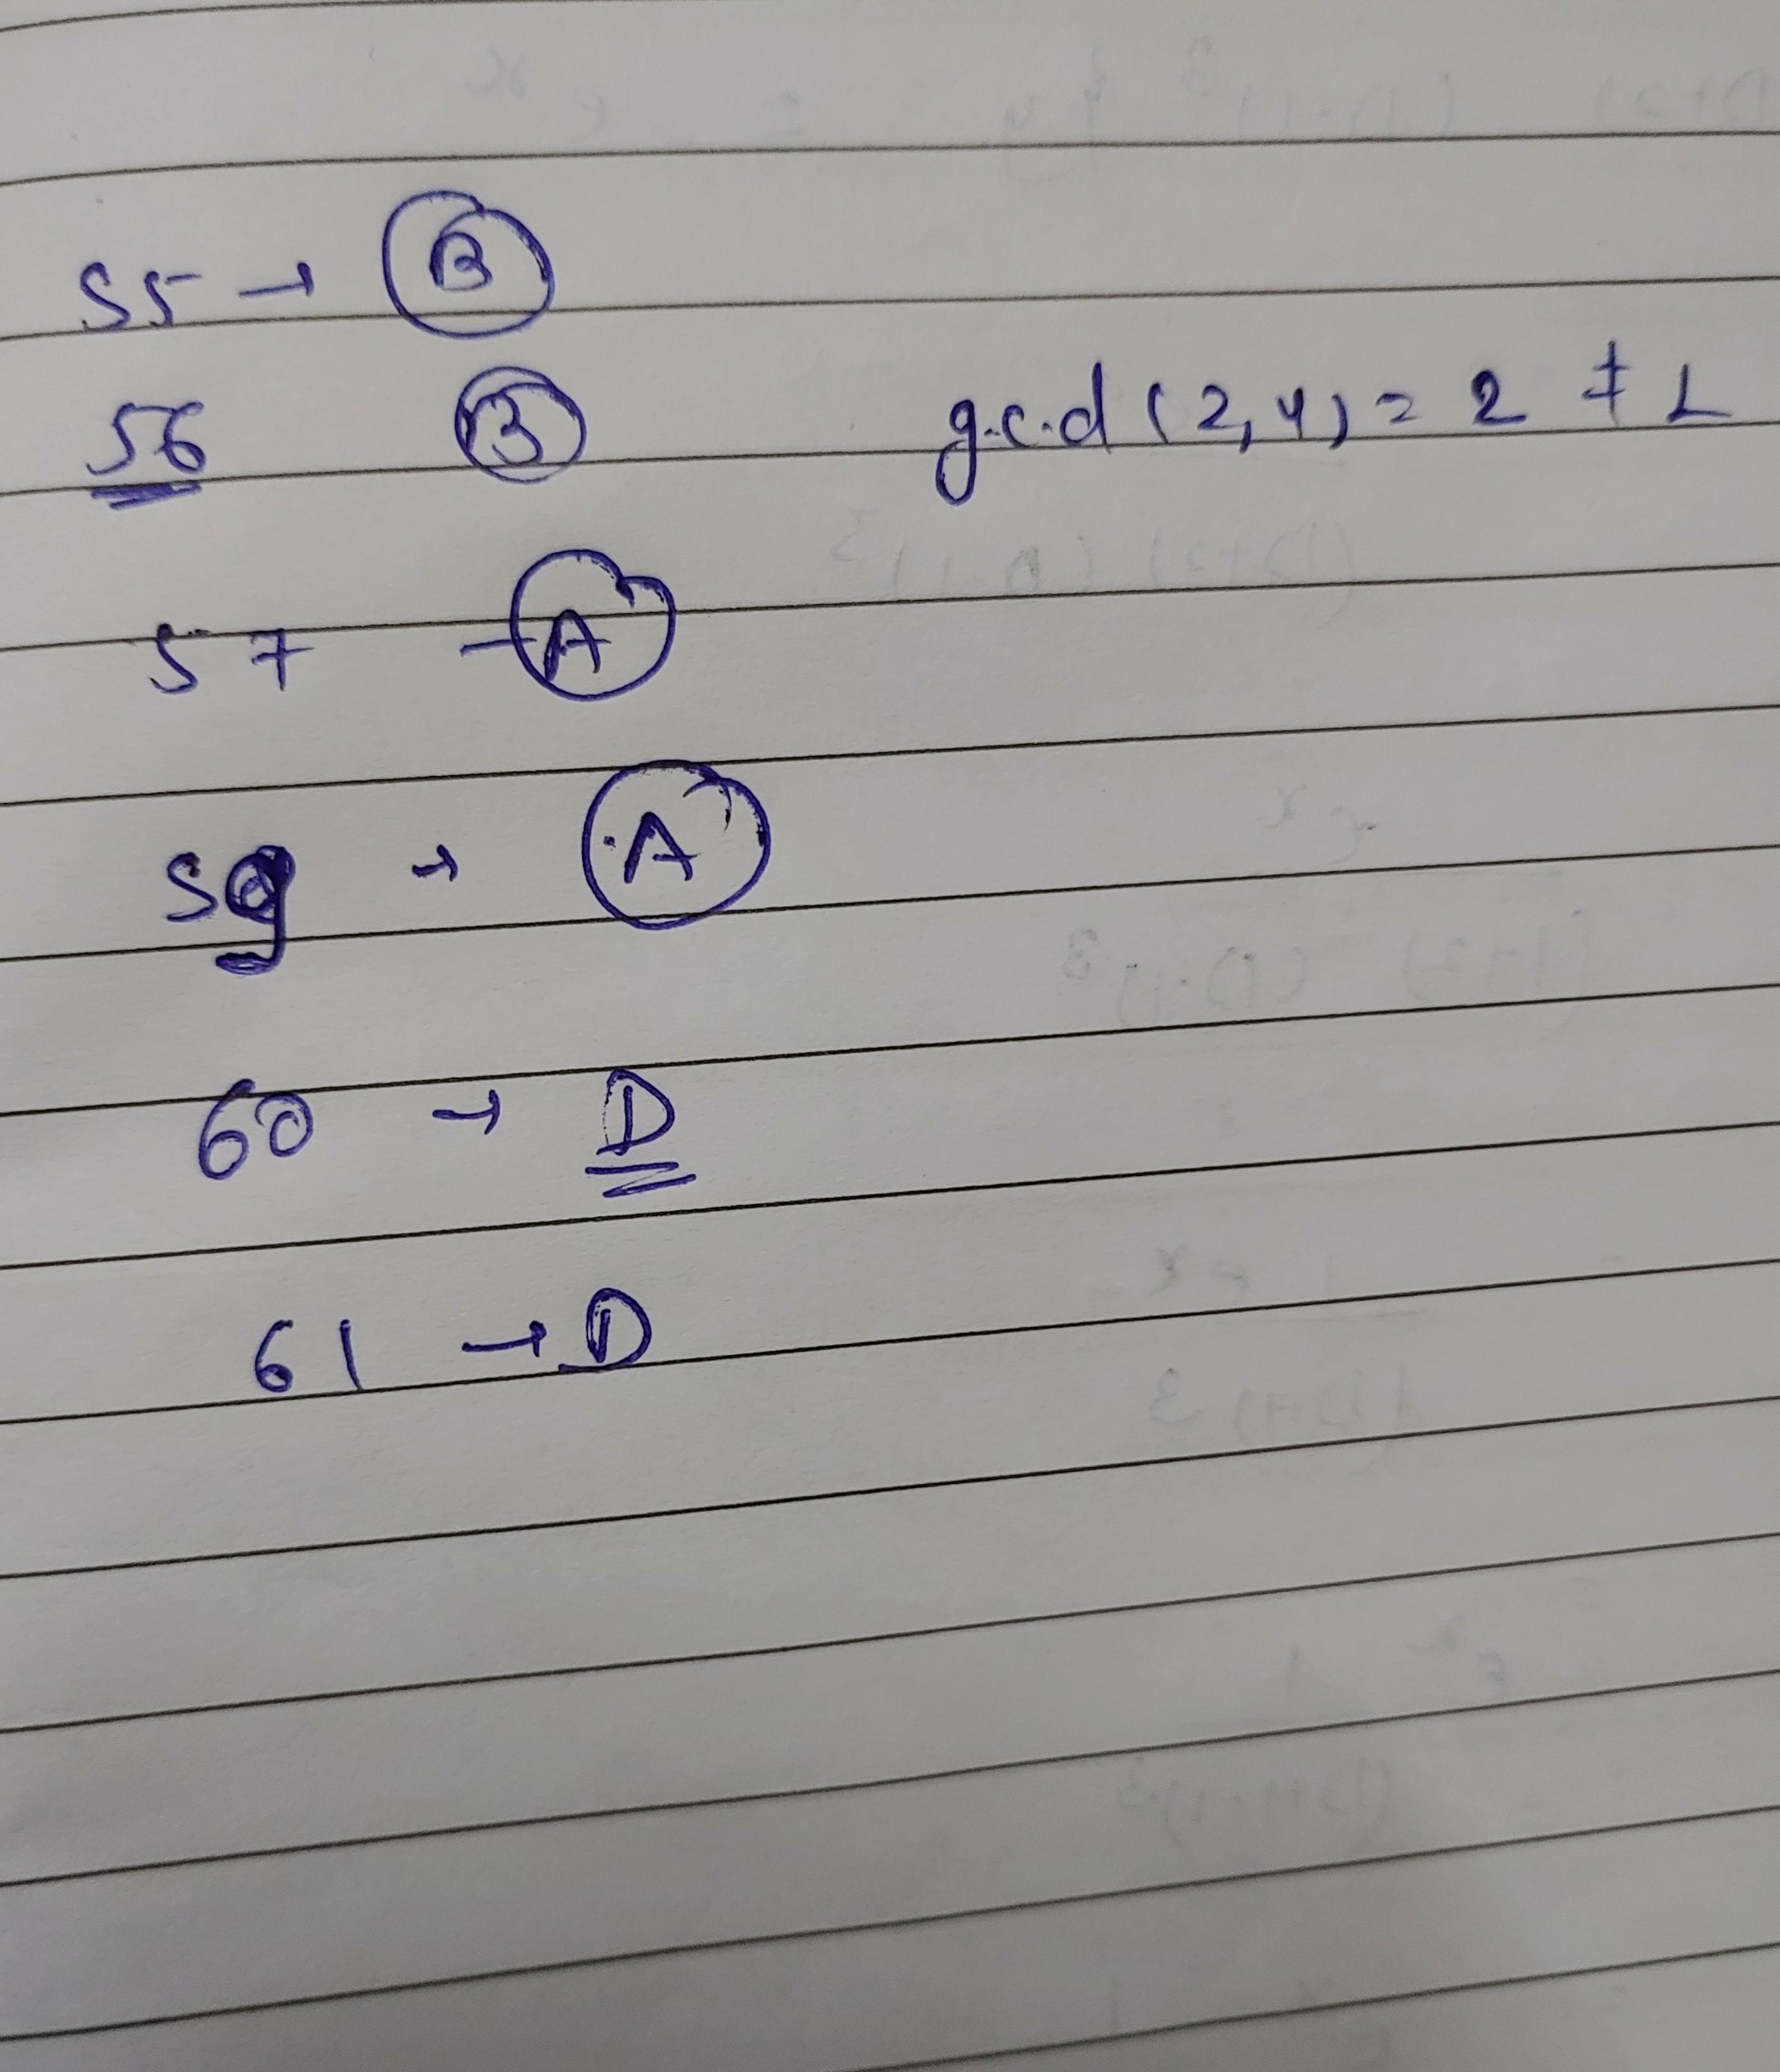 55 → B
56 B g.c.d (2,4) = 2 ≠ 1
57 - A
59 → A
60 → D
61 → D